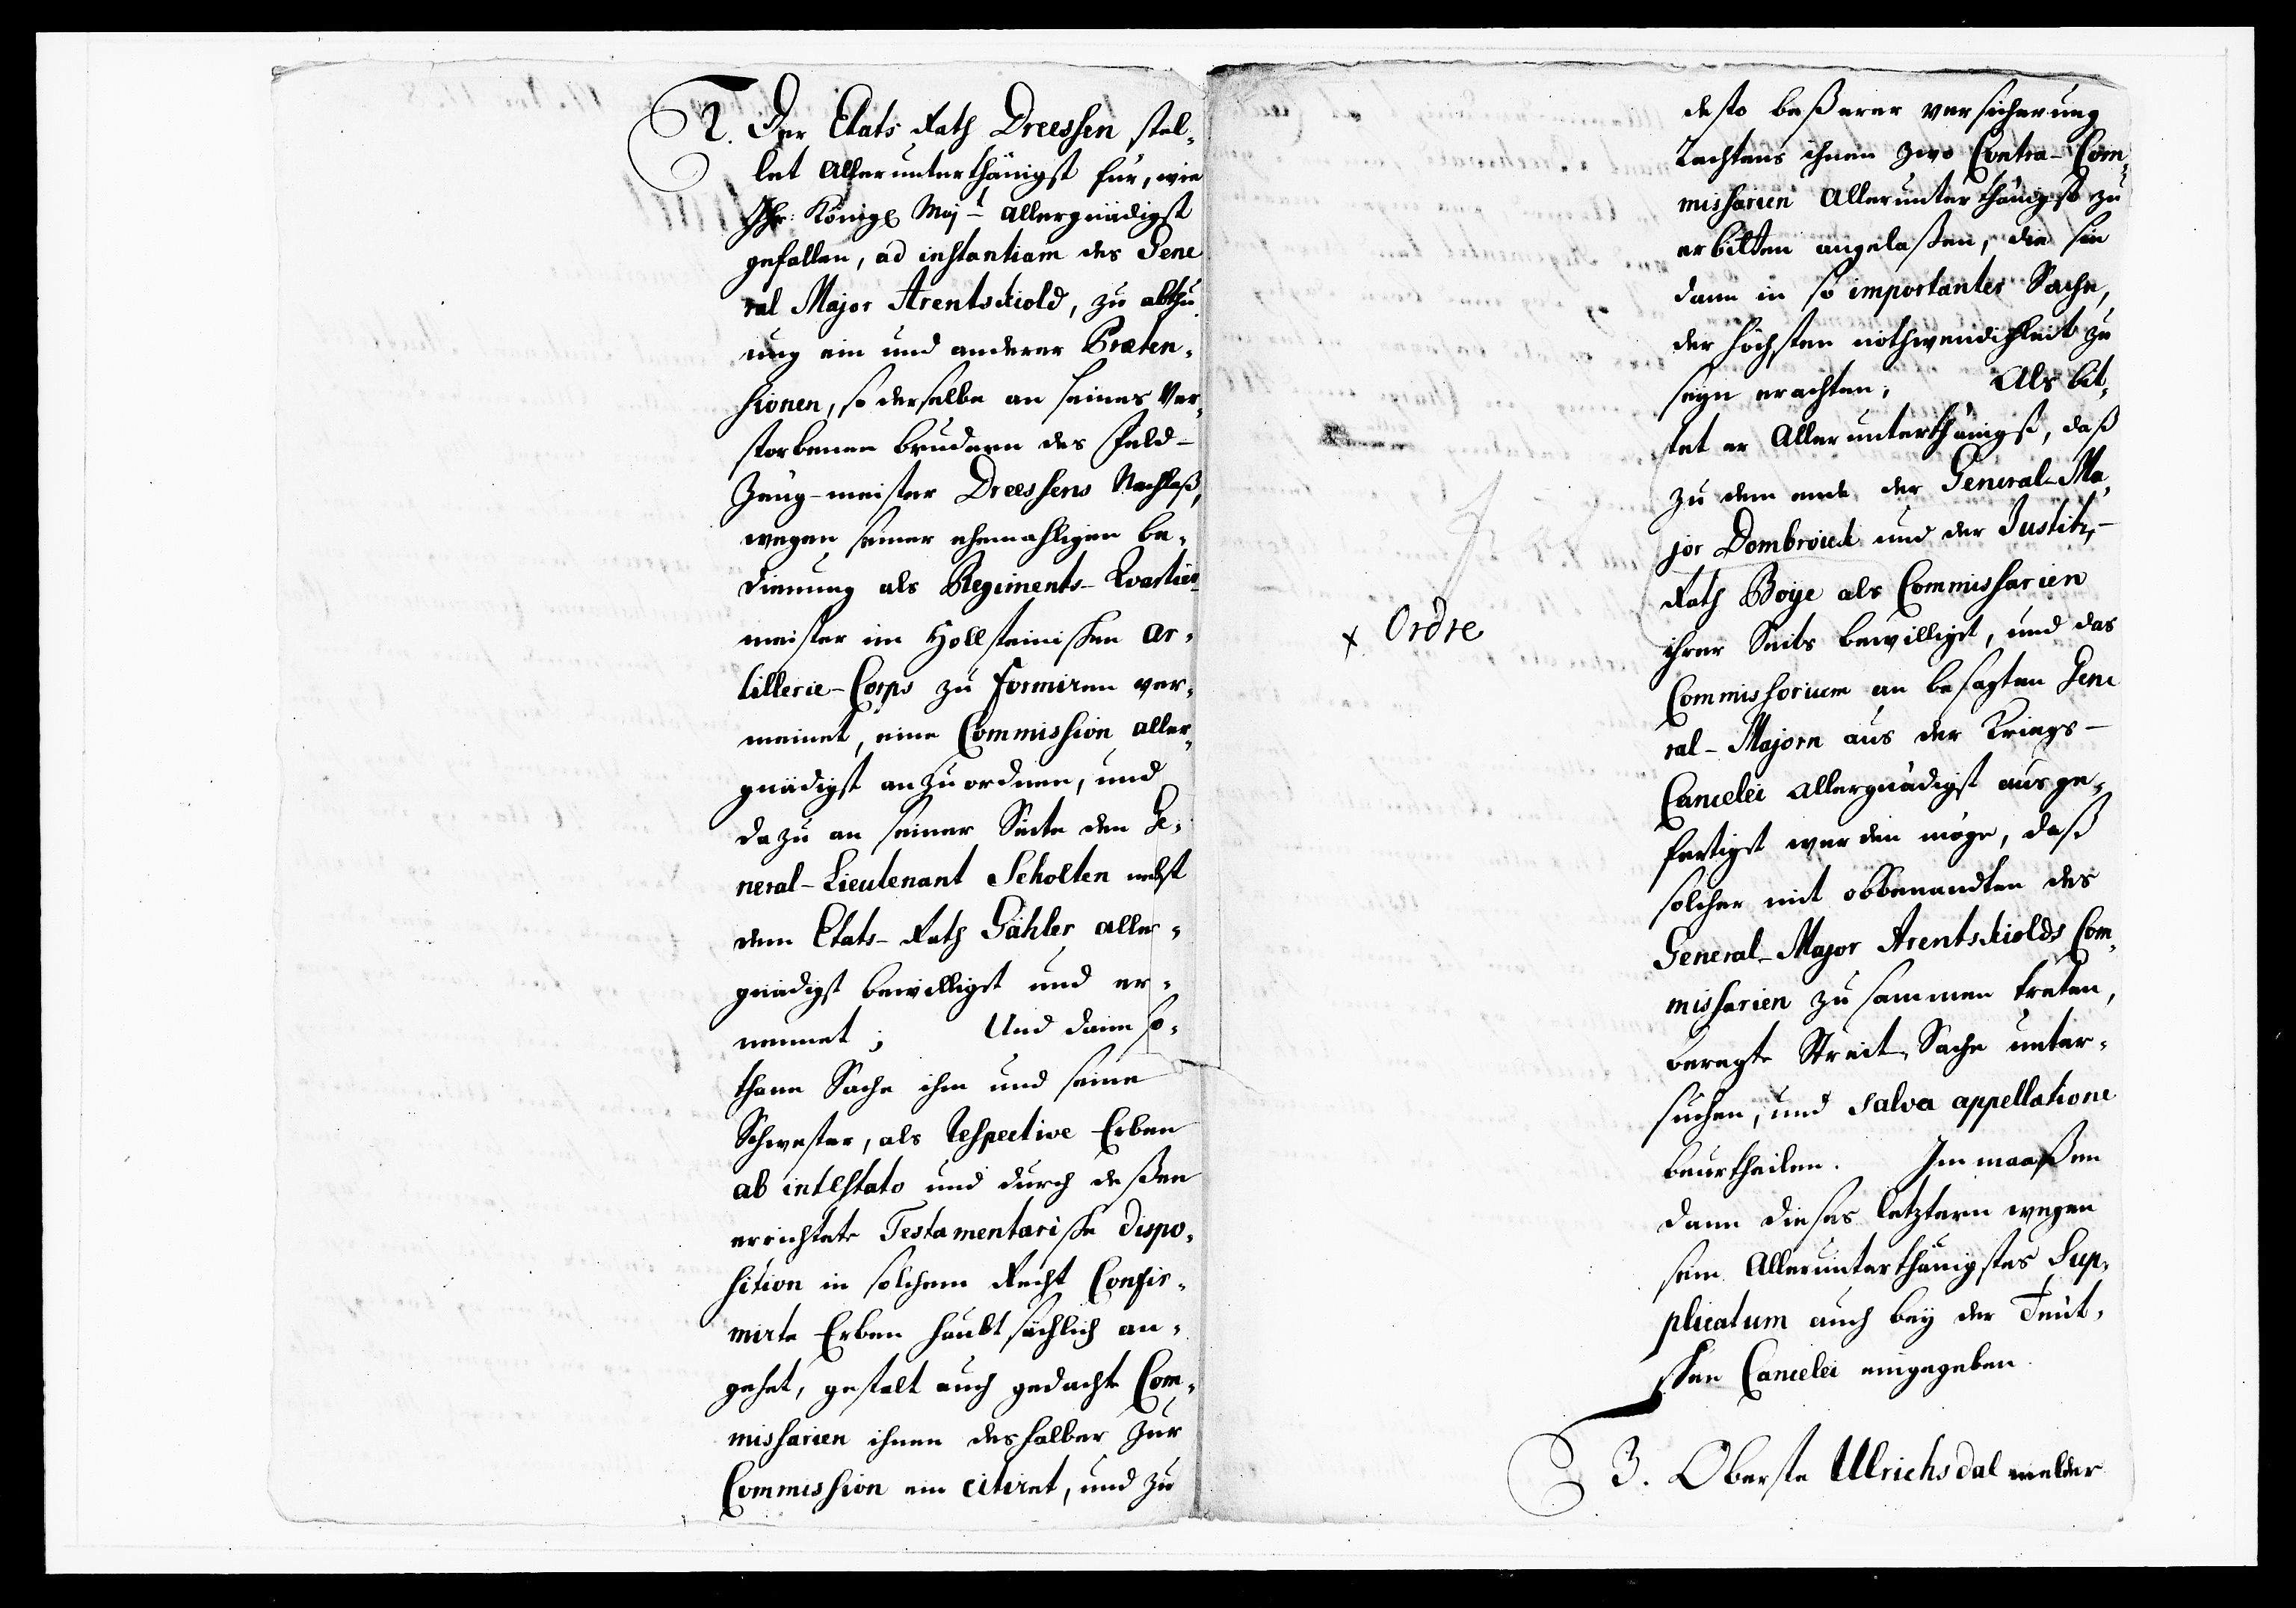 2. Der Etats Rath Dreessen stel-
let Allerunterthänigst für, wie
Ihr: Königl Majt allergnädigst
gefallen, ad instantiam des Gene
ral Major Arentskiold, zu abthu
ung ein und anderer Præten-
sionen, so derselbe an seines Ver-
storbenen brudern des Feld-
Zeug-meister Dreessens Nachlaß,
wegen seiner ehemahligen be-
dienung als Regiments-Qvartier-
meister im Hollsteinischen Ar-
tillerie-Corps zu formiren ver-
meinet, eine Commission aller-
gnädigst anzuordnen, und
dazu an seiner Seite den Ge-
neral-Lieutenant Scholten nebst
dem Etats-Rath Gähler aller-
gnädigst bewilliget und er-
nennet; Und dann so-
thane Sache ihm und seine
Schwester, als respective Erben
ab intestato und durch deßen
errichtete Testamentarische dispo-
sition in solchem Recht Confir-
mirte Erben haubtsächlich an-
gehet, gestalt auch gedachte Com-
missarien ihnen deshalber zur
Commission ein citiret, und zu
desto beßerer versicherung
Rechtens ihnen zwo Contra-Com-
missarien Allerunterthänigst zu
erbitten angelaßen, die sie
dann in so importanter Sache,
der höchsten nothwendichkeit zu
seyn erachten; Als bit-
tet er Allerunterthänigst, daß
zu dem ende der General-Ma-
jor Dombroick und der Justitz-
Rath Boije als Commissarien
ihrer Seits bewilliget, und das
x Ordre
Commissorium an besagten Gene
ral-Majorn aus der Kriegs-
Cancelei allergnädigst ausge-
fertiget werden möge, daß
solcher mit obbenandten des
General-Major Arentskiolds Com-
missarien zusammen treten,
beregte Streit-Sache unter-
suchen, und salva appellatione
beurtheilen. Immaaßen
dann dieses letztern wegen
sein Allerunterthänigstes Sup-
plicatum auch bey der Teut-
schen Cancelei eingegeben.
3. Oberste Ulrichsdal melder